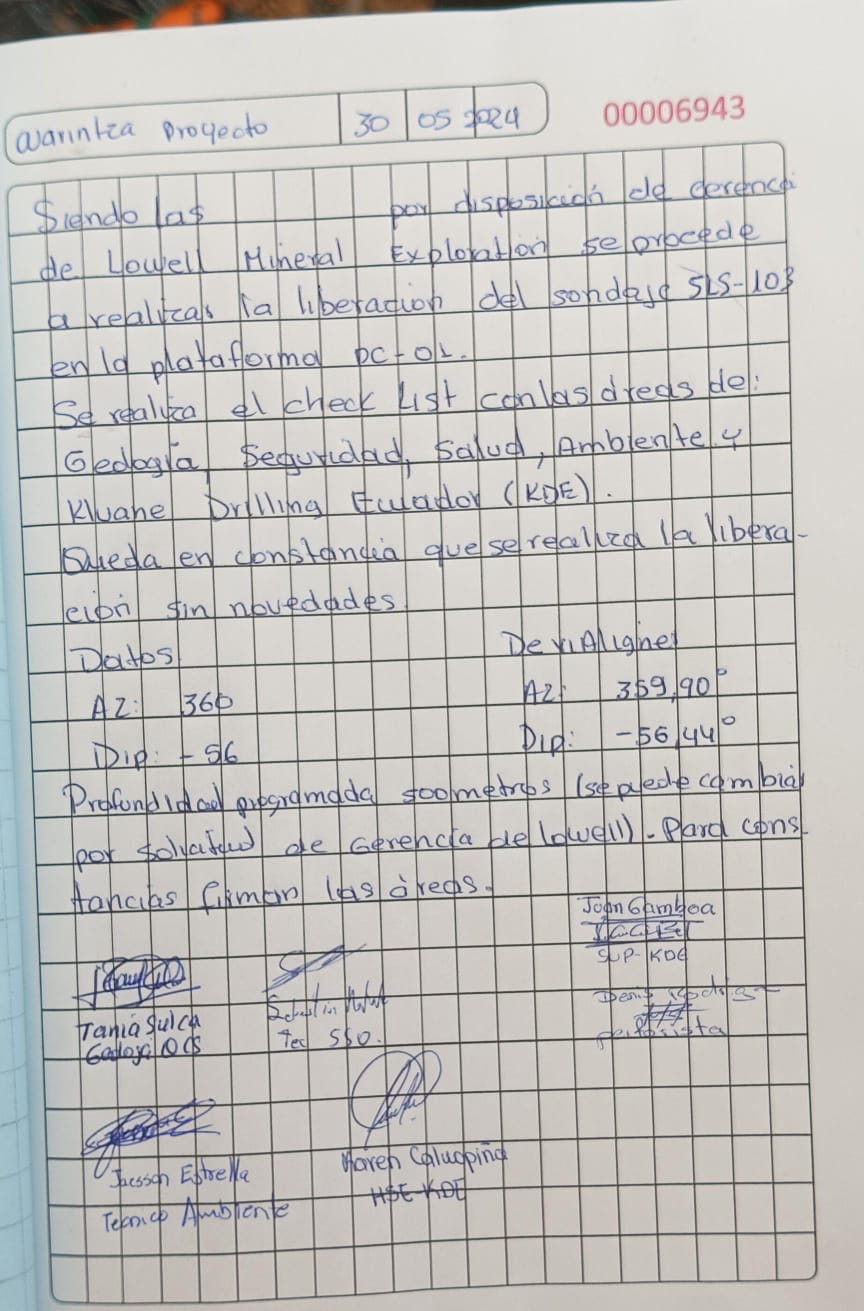 Warintza Proyecto 30 05 2024 00006943
Siendo las por disposición de Gerencia
de Lowell Mineral Exploration se procede
a realizar la liberacion del sondaje SLS-103
en la plataforma PC-01.
Se realiza el check List con las áreas de:
Geología, Seguridad, Salud, Ambiente y
Kluane Drilling Ecuador (KDE).
Queda en constancia que se realiza la libera-
ción sin novedades.
Datos DeviAligner
AZ: 360 AZ: 359,90°
Dip: -56 Dip: -56,44°
Profundidad programada 500 metros (se puede cambiar
por solicitud de Gerencia de Lowell). Para cons-
tancias firman las áreas.
Joan Gamboa
SUP-KDE
Tania Sulca
QCS
Tec SSO.
Jacsson Estrella
Tecnico Ambiente
Karen Caluqpiña
HSE-KDE